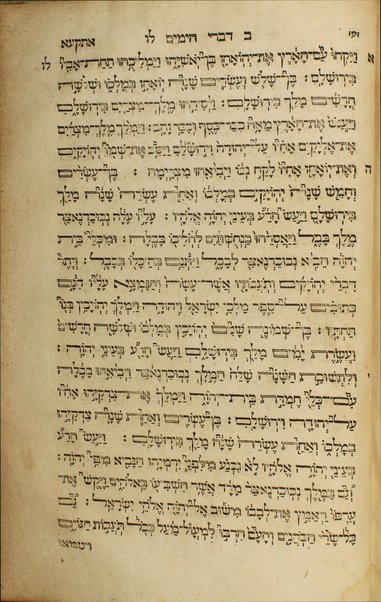 ב דברי הימים לו
א ויקחו עם־הארץ את־יהואחז בן־יאשיהו וימליכהו תחת־אביו לו
בירושלם: בן־שלש ועשרים שנה יואחז במלכו ושלשה
חדשים מלך בירושלם: ויסירהו מלך־מצרים בירושלם
ויענש את־הארץ מאה ככר־כסף וככר זהב: וימלך מלך־מצרים
את־אליקים אחיו על־יהודה וירושלם ויסב את־שמו יהויקים
ה ואת־יואחז אחיו לקח נכו ויביאהו מצרימה: בן־עשרים
וחמש שנה יהויקים במלכו ואחת עשרה שנה מלך
בירושלם ויעש הרע בעיני יהוה אלהיו: עליו עלה נבוכדנאצר
מלך בבל ויאסרהו בנחשתים להליכו בבלה: ומכלי בית
יהוה הביא נבוכדנאצר לבבל ויתנם בהיכלו בבבל: ויתר
דברי יהויקים ותעבתיו אשר־עשה והנמצא עליו הנם
כתובים על־ספר מלכי ישראל ויהודה וימלך יהויכין בנו
תחתיו: בן־שמונה שנים יהויכין במלכו ושלשה חדשים
ועשרת ימים מלך בירושלם ויעש הרע בעיני יהוה:
י ולתשובת השנה שלח המלך נבוכדנאצר ויבאהו בבלה
עם־כלי חמדת בית־יהוה וימלך את־צדקיהו אחיו
על־יהודה וירושלם: בן־עשרים ואחת שנה צדקיהו
במלכו ואחת עשרה שנה מלך בירושלם: ויעש הרע
בעיני יהוה אלהיו לא נכנע מלפני ירמיהו הנביא מפי יהוה:
וגם במלך נבוכדנאצר מרד אשר השביעו באלהים ויקש את־
ערפו ויאמץ את־לבבו משוב אל־יהוה אלהי ישראל: גם
כל־שרי הכהנים והעם הרבו למעול־מעל ככל תועבות הגוים
ויטמאו